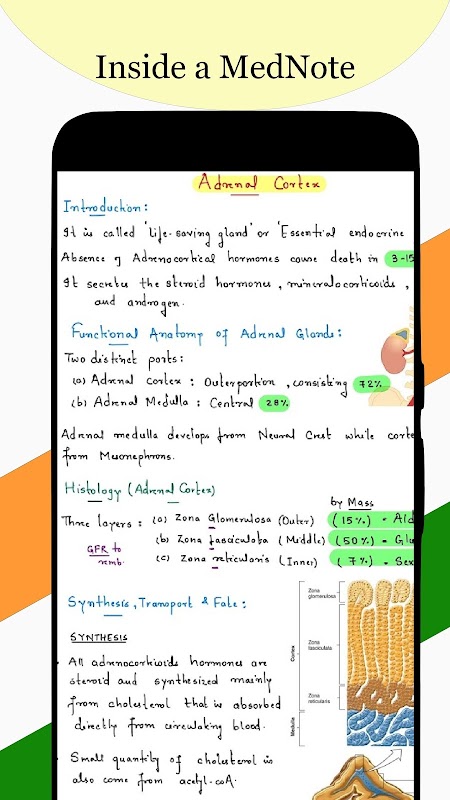 Inside a MedNote
Adrenal Cortex
Introduction:
It is called 'life-saving gland' or 'Essential endocrine
Absence of Adrenocortical hormones cause death in 3-15
It secretes the steroid hormones, mineralocorticoids,
and androgen.
Functional Anatomy of Adrenal Glands:
Two distinct parts:
(a) Adrenal cortex : Outerportion, consisting 72%
(b) Adrenal Medulla : Central 28%
Adrenal medulla develops from Neural Crest while corte
from Mesonephrons.
Histology (Adrenal Cortex)
by Mass
Three layers: (a) Zona Glomerulosa (Outer) (15%) - Ald
(b) Zona fasciculata (Middle) (50%) - Glu
(c) Zona reticularis (Inner) (7%) - Sex
GFR to
remb.
Synthesis, Transport & Fate:
SYNTHESIS
All adrenocorticoids hormones are
steroid and synthesized mainly
from cholesterol that is absorbed
directly from circulating blood.
Small quantity of cholesterol is
also come from acetyl-coA.
Zona
glomerulosa
Zona
fasciculata
Zona
reticularis
Cortex
Medulla